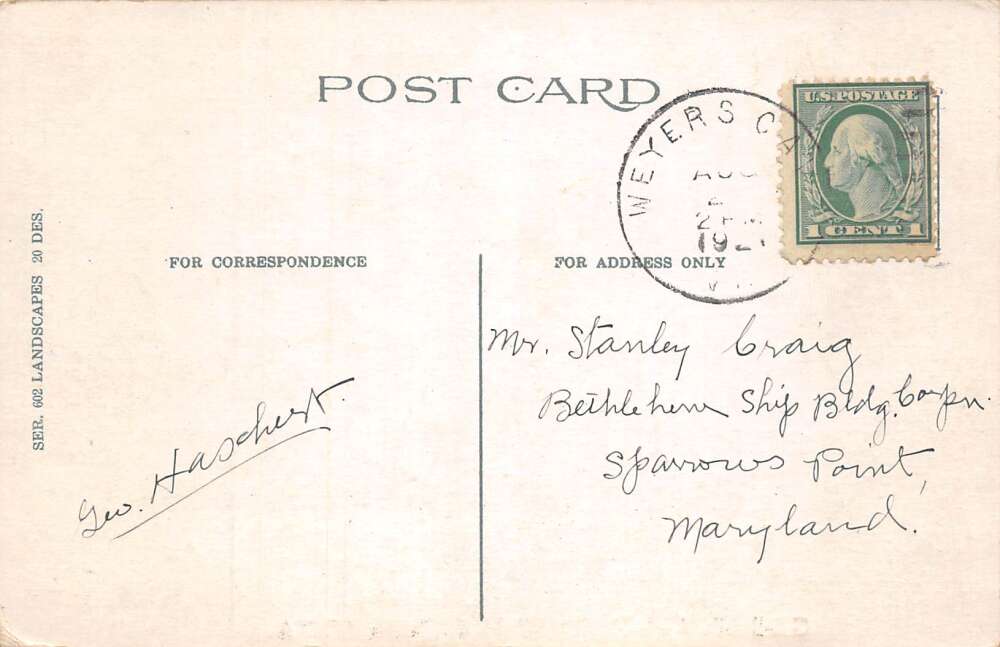 POST CARD
WEYERS CA
AUG
2 PM
192
VA
U.S. POSTAGE
1 CENT 1
FOR CORRESPONDENCE
FOR ADDRESS ONLY
SER. 602 LANDSCAPES 20 DES.
Geo. Haschert.
Mr. Stanley Craig
Bethlehem Ship Bldg. Corpn.
Sparrows Point,
Maryland.